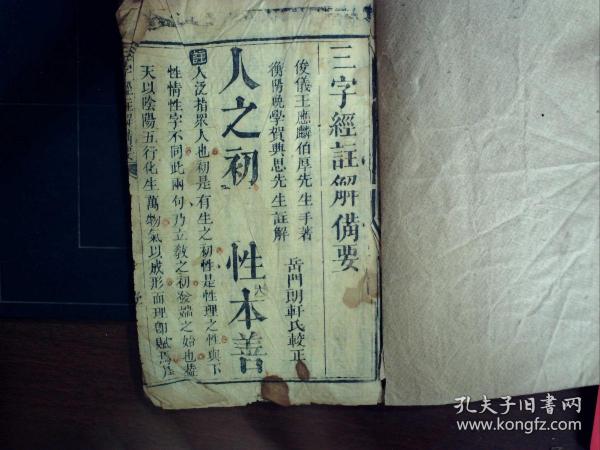 三字經註解備要
俊儀王應麟伯厚先生手著
衡陽晚學賀興思先生註解
岳門朗軒氏較正
人之初 性本善
註人泛指眾人也初是有生之初性是性理之性與下
性情性字不同此兩句乃立教之初發端之始也蓋
天以陰陽五行化生萬物氣以成形而理卽賦焉
字經註解備要
孔夫子旧书网
www.kongfz.com